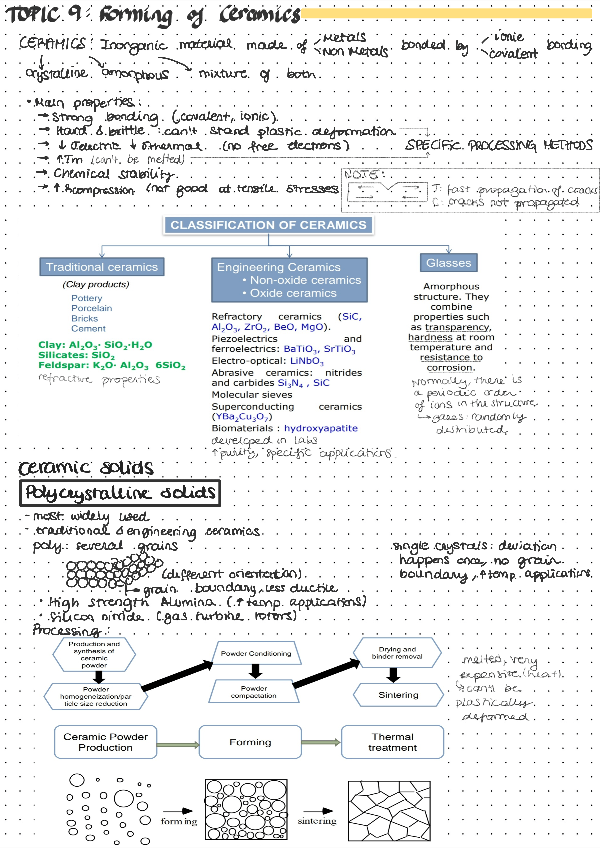 TOPIC 9: Forming of Ceramics
CERAMICS: Inorganic material made of Metals Non Metals bonded by ionic covalent bonding
crystalline amorphous mixture of both
• Main properties:
→ Strong bonding (covalent, ionic)
→ Hard & brittle: can't stand plastic deformation
→ ↓ σelectric ↓ σthermal (no free electrons) SPECIFIC PROCESSING METHODS
→ ↑Tm (can't be melted)
→ Chemical stability
→ ↑ compression (not good at tensile stresses)
NOTE:
T: fast propagation of cracks
C: cracks not propagated
CLASSIFICATION OF CERAMICS
Traditional ceramics
(Clay products)
Pottery
Porcelain
Bricks
Cement
Clay: Al₂O₃· SiO₂·H₂O
Silicates: SiO₂
Feldspar: K₂O· Al₂O₃ 6SiO₂
refractive properties
Engineering Ceramics
• Non-oxide ceramics
• Oxide ceramics
Refractory ceramics (SiC,
Al₂O₃, ZrO₂, BeO, MgO).
Piezoelectrics and
ferroelectrics: BaTiO₃, SrTiO₃
Electro-optical: LiNbO₃
Abrasive ceramics: nitrides
and carbides Si₃N₄ , SiC
Molecular sieves
Superconducting ceramics
(YBa₂Cu₃O₇)
Biomaterials : hydroxyapatite
developed in labs
↑purity, specific applications
Glasses
Amorphous
structure. They
combine
properties such
as transparency,
hardness at room
temperature and
resistance to
corrosion.
Normally, there is
a periodic order
of ions in the structure
↳ gases randomly
distributed
Ceramic solids
Polycrystalline solids
- most widely used
- traditional & engineering ceramics
poly: several grains
(different orientation)
↳ grain boundary, less ductile
• High strength Alumina (↑temp. applications)
• Silicon nitride (gas turbine rotors)
single crystals: deviation
happens once, no grain
boundary, ↑temp. applications
Processing:
Production and
synthesis of
ceramic
powder
Powder
homogeneization/par
ticle size reduction
Powder Conditioning
Powder
compactation
Drying and
binder removal
Sintering
melted, very
expensive (heat)
↳ can't be
plastically
deformed
Ceramic Powder
Production
Forming
Thermal
treatment
forming
sintering